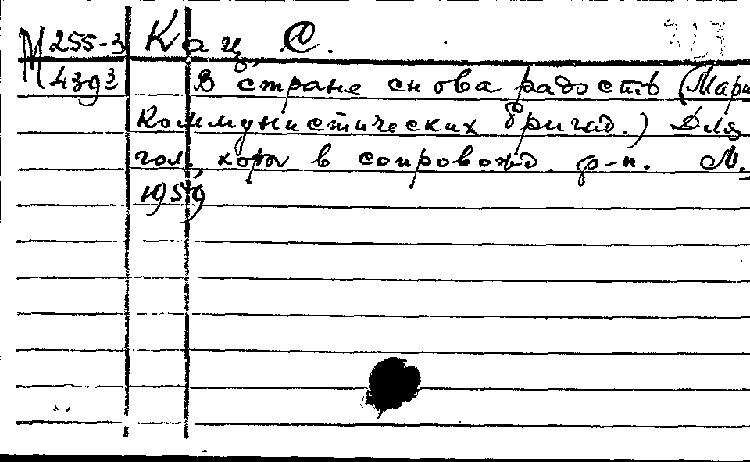 М 255-3 Кац, С.
439³ В стране снова радость (Марш
Коммунистических бригад.) Для
гол, хора в сопровожд. ф-п. М.,
1959